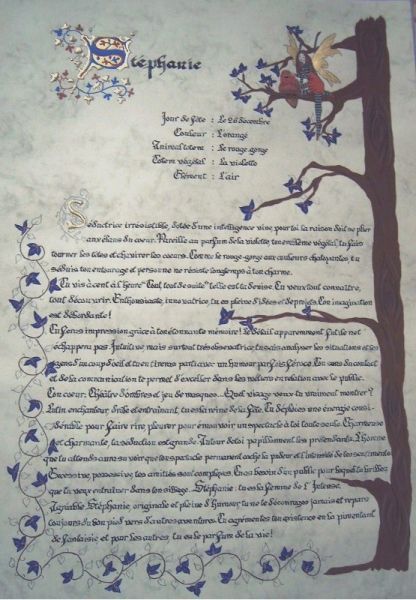 Stéphanie
Jour de fête : Le 26 décembre
Couleur : L'orangé
Animal totem : Le rouge-gorge
Totem végétal : La violette
Élément : L'air
Séductrice irrésistible, dotée d'une intelligence vive, pour toi la raison doit se plier
aux élans du coeur. Pareille au parfum de la violette, ton emblème végétal, tu fais
tourner les têtes et chavirer les coeurs. Comme le rouge-gorge aux couleurs chatoyantes, tu
séduis ton entourage et personne ne résiste longtemps à ton charme.
Tu vis à cent à l'heure. "Oui, tout de suite" telle est ta devise. Tu veux tout connaître,
tout découvrir. Enthousiaste, innovatrice, tu es pleine d'idées et de projets. Ton imagination
est débordante !
Tu fais impression grâce à ton étonnante mémoire ! Le détail apparemment futile ne t'
échappera pas. Intuitive mais surtout très observatrice tu sais analyser les situations et les
gens d'un coup d'oeil et tu en tires parti avec un humour parfois féroce. Ton sens du contact
et de la communication te permet d'exceller dans les métiers en relation avec le public.
Ton coeur : Théâtre d'ombres et jeu de masques... Quel visage veux-tu vraiment montrer ?
Lutin enchanteur, drôle et entraînant, tu es la reine de la fête. Tu déploies une énergie consi-
dérable pour faire rire, pleurer, pour émouvoir un spectacle à toi toute seule. Charmeuse
et charmante, la séduction est grande. Autour de toi papillonnent les prétendants. L'homme
que tu attends aura su voir que ce spectacle permanent cache la pudeur et l'intensité de tes sentiments.
Excessive, possessive, tes amitiés sont complices. Tu as besoin d'un public pour lequel tu
que tu veux entraîner dans ton sillage. Stéphanie : tu es la femme de l'
Agréable Stéphanie, originale et pleine d'humour, tu ne te décourages jamais et repars
toujours du bon pied vers d'autres aventures. Tu agrémentes ton existence en la pimentant
de fantaisie et pour les autres, tu es le parfum de la vie !